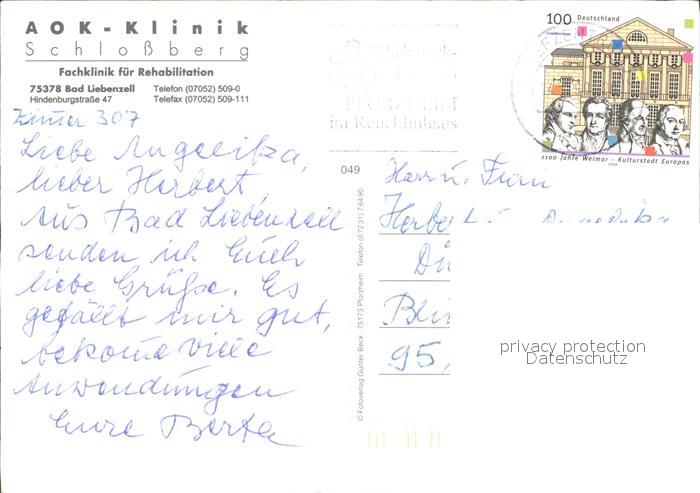 AOK-Klinik
Schloßberg
Fachklinik für Rehabilitation
75378 Bad Liebenzell Telefon (07052) 509-0
Hindenburgstraße 47 Telefax (07052) 509-111
Zimmer 307
Liebe Angelika,
lieber Herbert
Aus Bad Liebenzell
senden ich Euch
liebe Grüße. Es
gefällt mir gut,
bekome viele
Anwendungen
Eure Berta
049
© Fotoverlag Günter Beck 75173 Pforzheim Telefon (07231) 76490
PFORZHEIM
im Reuchlinhaus
100 Deutschland
1100 Jahre Weimar - Kulturstadt Europas
1999
Herrn u. Frau
95
privacy protection
Datenschutz